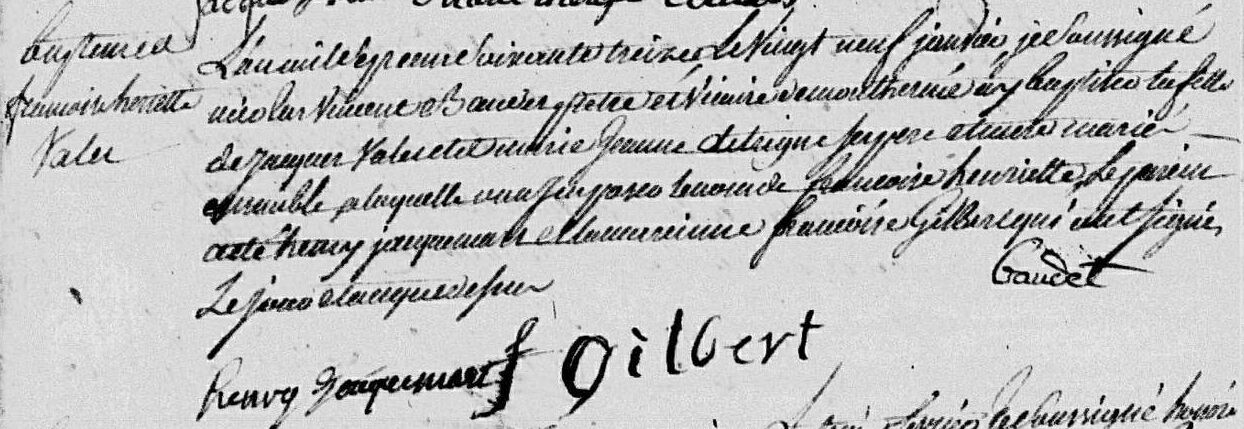 Baptême d
françoise henriette
Valer
L'an mil sept cent soixante treize le vingt neuf janvier je soussigné
nicolas vincent prêtre et vicaire de monthermé ay baptisé la fille
de jacques Valer et de marie Jeanne ses pere et mere mariés
ensemble a laquelle on a imposé le nom de françoise henriette, le parein
a été henry jacquemart et la mareinne françoise Gilbert qui ont signés
Le jour et an que dessus
Gaudet
henry Jacquemart f Gilbert
soussigné